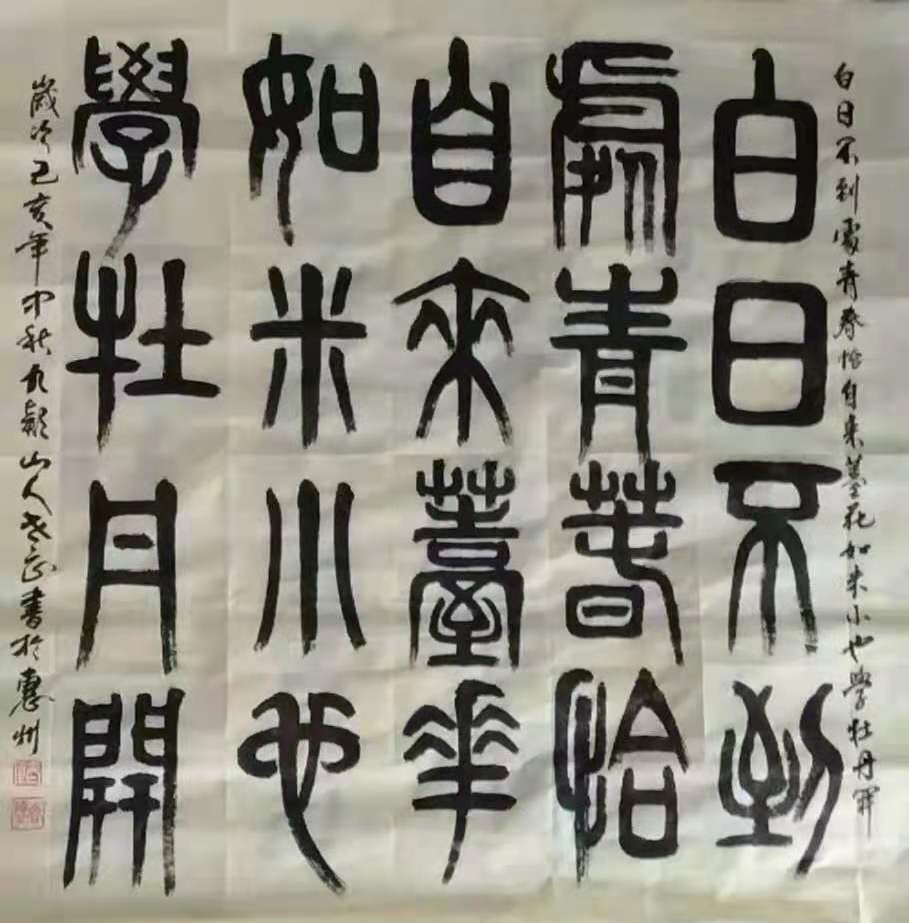 白日不到處青春恰自來薹花如米小也學牡丹開
白日不到
處青萅恰
自來薹華
如米小也
學牡丹開
歲次己亥年中秋九嶷山人書於惠州